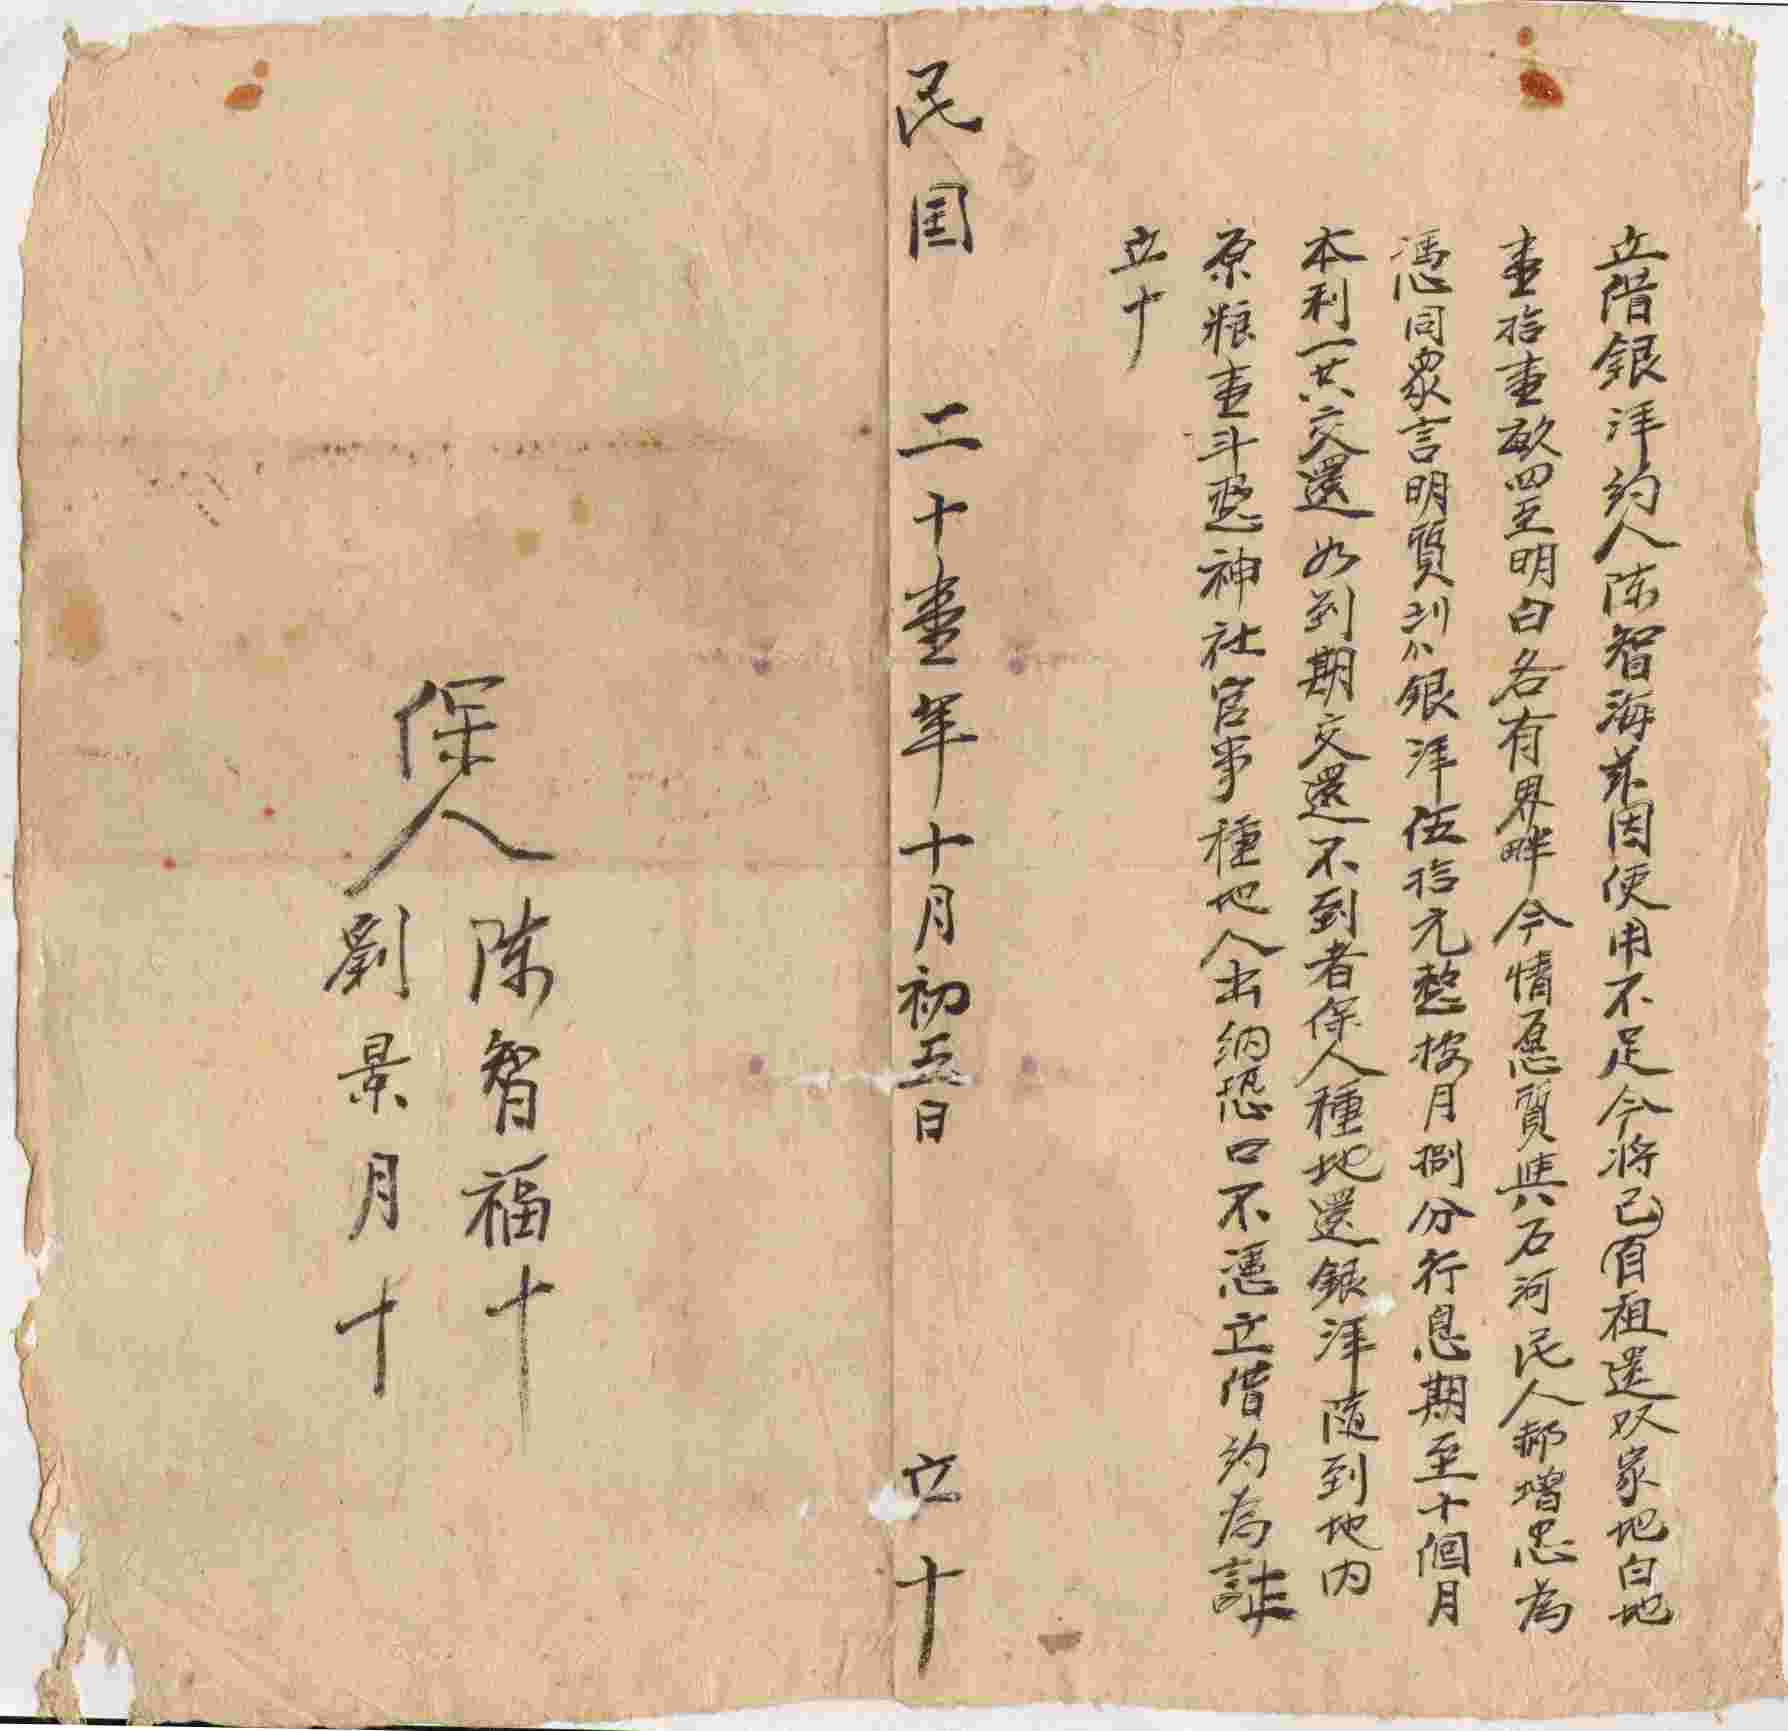 立借銀洋約人陈智海茶因使用不足今将己自祖遗双家地白地
壹拾壹畝四至明白各有界畔今情愿質與石河民人郝增忠為
憑同眾言明質到銀洋伍拾元整按月捌分行息期至十個月
本利一共交還如到期交還不到者保人種地還銀洋隨到地内
原粮壹斗整神社官事種地人出納恐口不憑立借約為証
立十
民国 二十壹年十月初五日 立十
保人 陈智福十
劉景月十